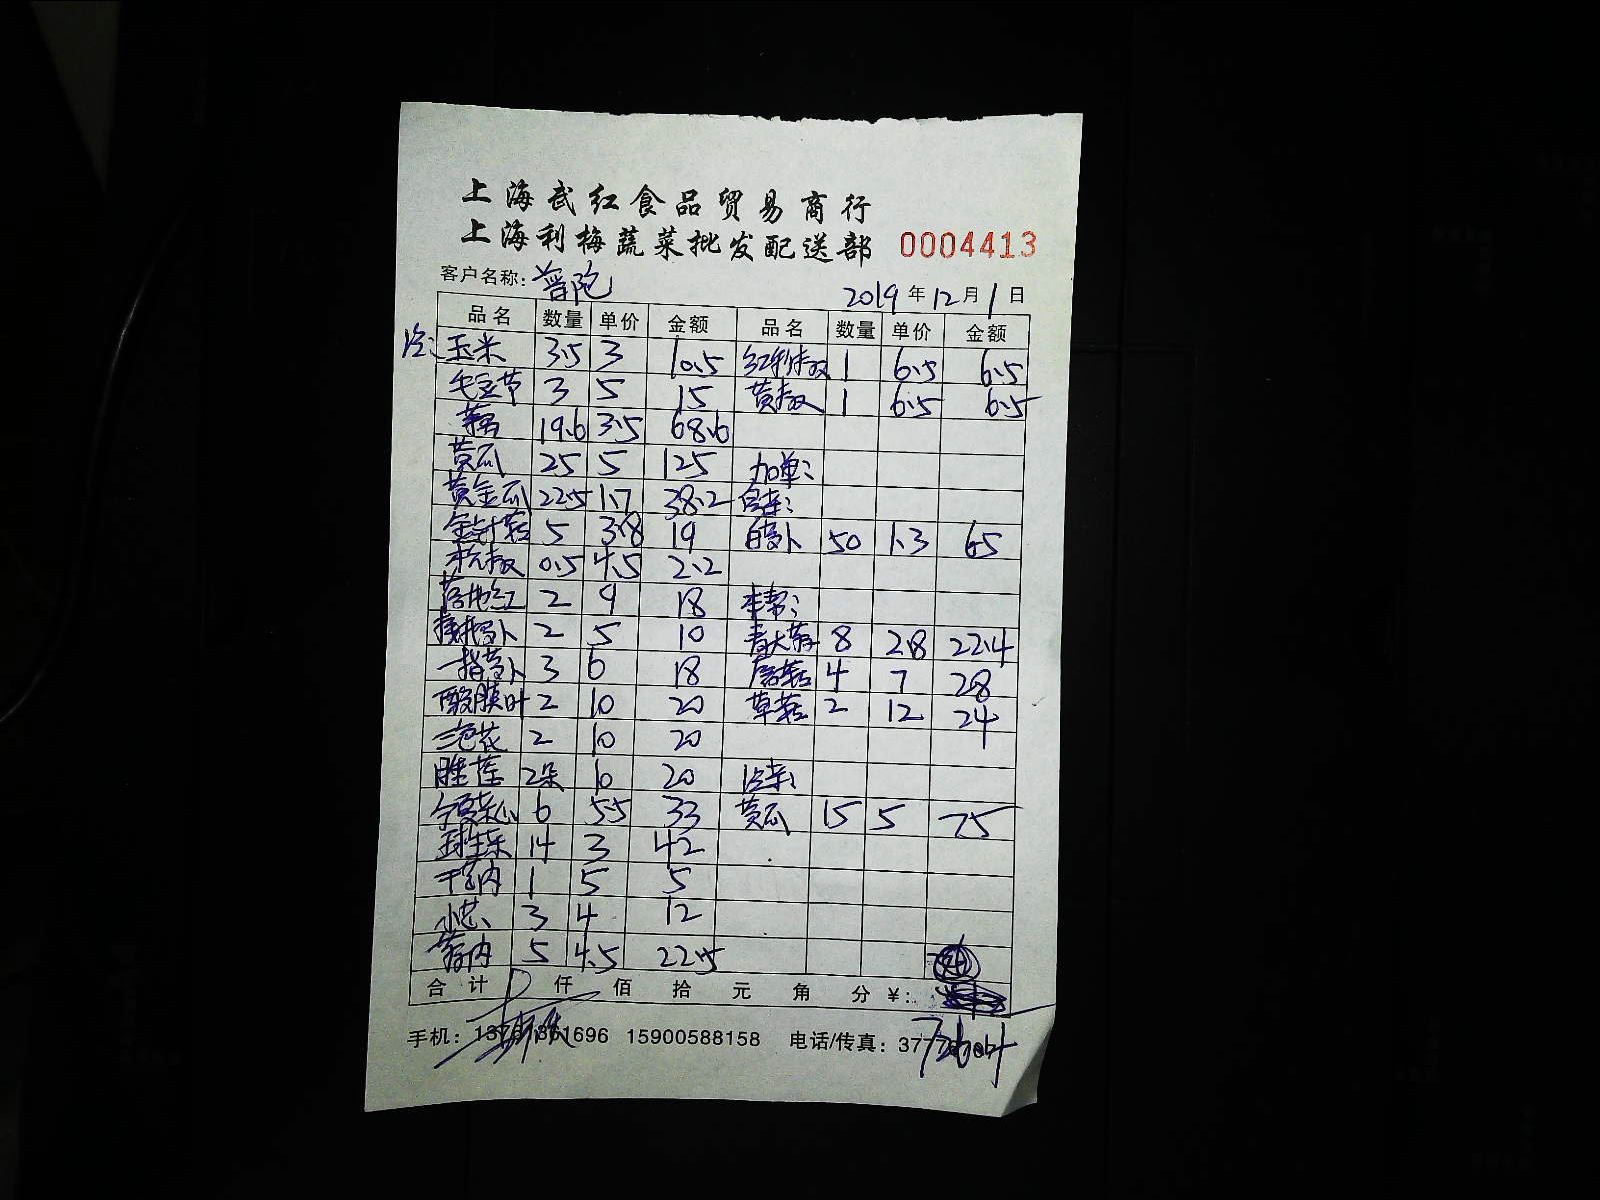 上海武红食品贸易商行
上海利梅蔬菜批发配送部 0004413
客户名称: 普陀 2019年12月1日
品名 数量 单价 金额 品名 数量 单价 金额
冷: 玉米 3.5 3 10.5 红彩椒 1 6.5 6.5
毛豆节 3 5 15 黄椒 1 6.5 6.5
藕 19.6 3.5 68.6
黄瓜 25 5 125 加单:
黄金瓜 22.5 1.7 38.2
金针菇 5 3.8 19 白萝卜 50 1.3 65
杭椒 0.5 4.5 2.2
2 9 18 本帮:
2 5 10 8 2.8 22.4
一指萝卜 3 6 18 4 7 28
酸膜叶 2 10 20 草菇 2 12 24
三色花 2 10 20
睡莲 2朵 10 20 冷菜:
宁夏菜心 6 5.5 33 黄瓜 15 5 75
球生菜 14 3 42
干葱肉 1 5 5
小葱 3 4 12
莴肉 5 4.5 22.5
合计 仟 佰 拾 元 角 分 ¥:
手机: 1696 15900588158 电话/传真: